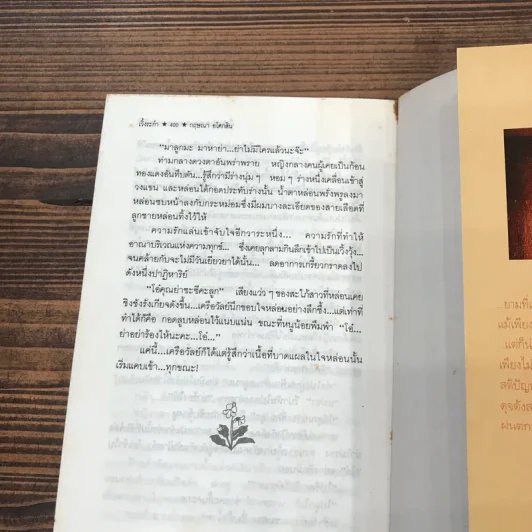 เวิ้งระกำ ★ 400 ★ กฤษณา อโศกสิน
"มาลูกมะ มาหาย่า...ย่าไม่มีใครแล้วนะจ๊ะ"
ท่ามกลางดวงตาอันพร่าพราย หญิงกลางคนผู้เคยเป็นก้อน
ทองแดงอันทึบตัน...รู้สึกว่ามีร่างนุ่ม ๆ หอม ๆ ร่างหนึ่งเคลื่อนเข้าสู่
วงแขน และหล่อนได้กอดประทับร่างนั้น น้ำตาหล่อนพรั่งพรูลงมา
หล่อนซบหน้าลงกับกระหม่อมซึ่งมีผมบางละเอียดของสายเลือดที่
ลูกชายหล่อนทิ้งไว้ให้
ความรักแล่นเข้าจับใจอีกวาระหนึ่ง... ความรักที่ทำให้
อาณาบริเวณแห่งความทุกข์... ซึ่งเคยลุกลามกินลึกเข้าไปเป็นเวิ้งวุ้ง...
จนคล้ายกับจะไม่มีวันเยียวยาได้นั้น... ลดอาการเกรี้ยวกราดลงไป
ดังหนึ่งปาฏิหาริย์
"โอ๋คุณย่าซะซีคะลูก" เสียงแว่ว ๆ ของสะใภ้สาวที่หล่อนเคย
ชิงชังรังเกียจดังขึ้น...เครือวัลย์นึกขอบใจหล่อนอย่างลึกซึ้ง...แต่เท่าที่
ทำได้ก็คือ กอดลูบหล่อนไว้แนบแน่น ขณะที่หนูน้อยพึมพำ "โอ๋...
ย่าอย่าร้องไห้นะคะ...โอ๋..."
แค่นี้...เครือวัลย์ก็ได้แต่รู้สึกว่าเนื้อที่บาดแผลในใจหล่อนนั้น
เริ่มแคบเข้า...ทุกขณะ!
แต่ก็น่
เพียงไม่
ฝนตก